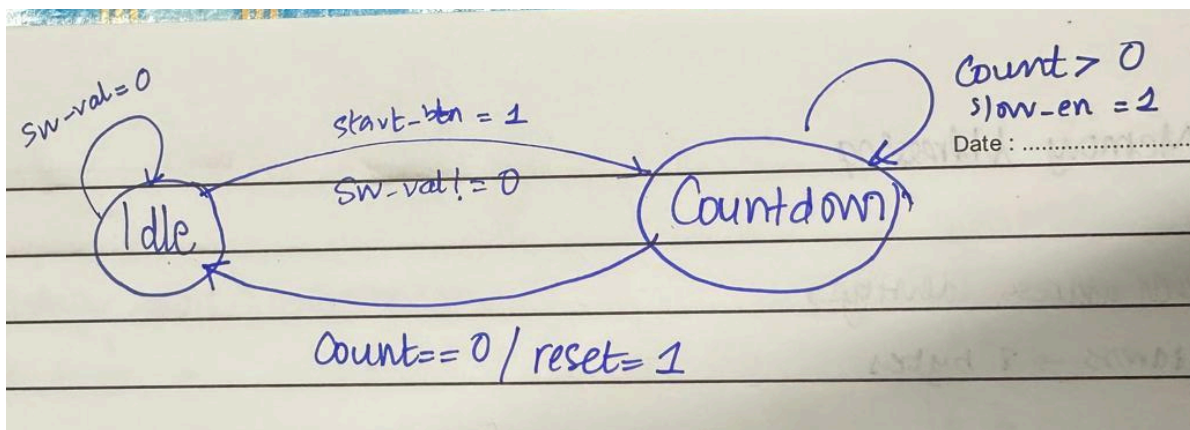 sw-val=0
start-btn = 1
sw-val != 0
Idle
Count > 0
slow-en = 1
Date :
Countdown
Count==0 / reset= 1